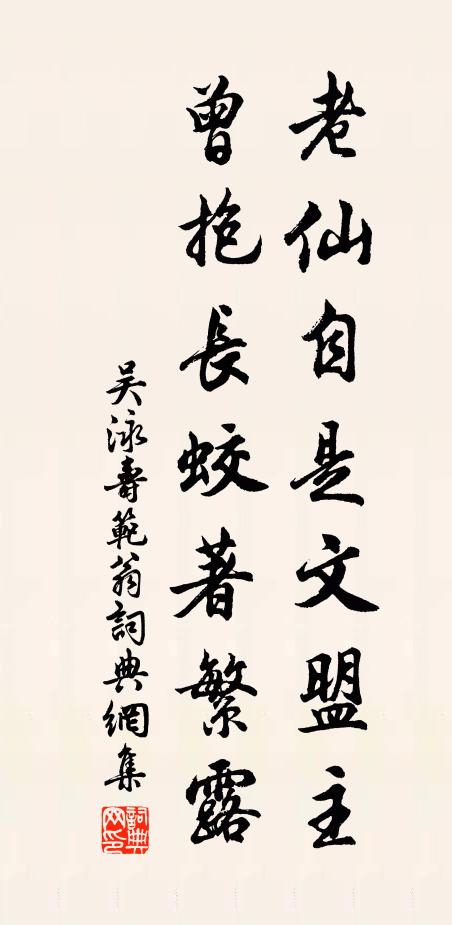 老仙自是文盟主
曾抱長蛟著繁露
吴泳壽範翁詞典網集
詞典网印